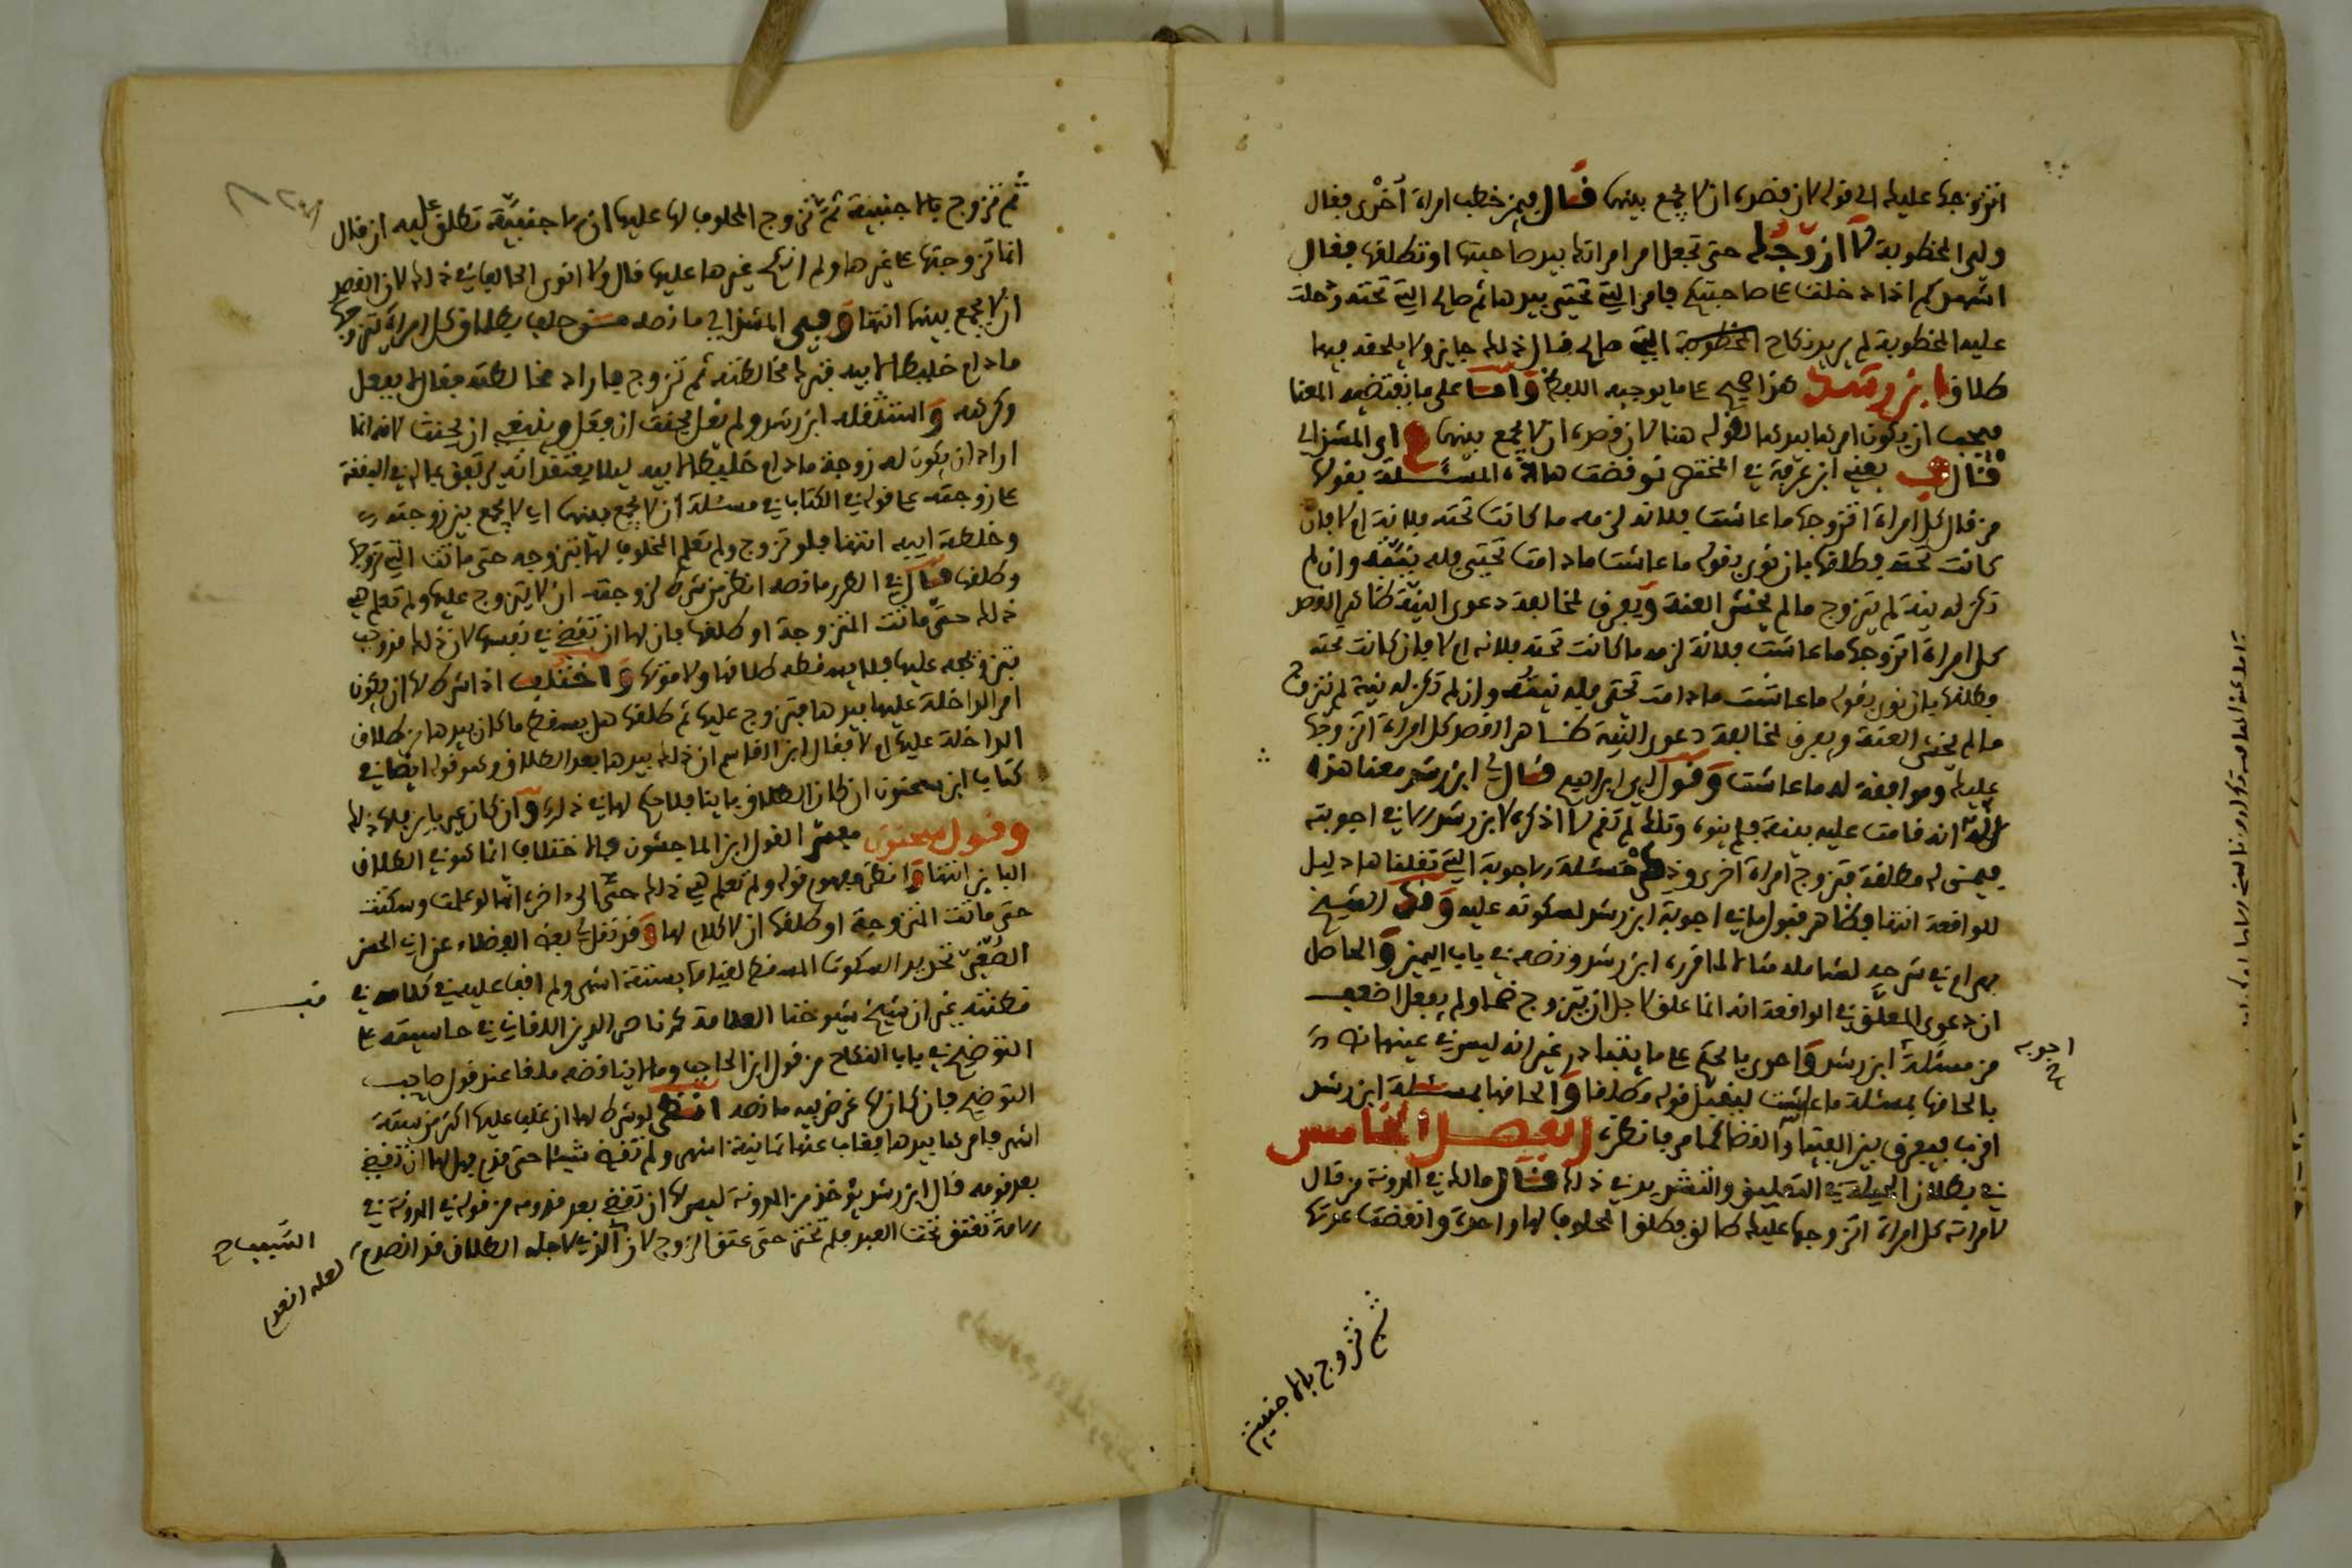 اتزوجها عليك الى قوله لان قصده ان لا يجمع بينهما قال فيمن خطب امراة اخرى فقال
ولي المخطوبة لا ازوجك حتى تجعل امر امراتك بيد صاحبتها او تطلقها فقال
اشهدكم اذا دخلت على صاحبتكم فامر التي تحتي بيدها ثم صالح التي تحته ودخلت
عليه المخطوبة لم يرد نكاح التي صالح قال ذلك جايز ولا يلحقه فيها
طلاق ابن رشد هذا صحيح على ما يوجبه اللفظ واما على ما يقتضيه المعنا
فيجب ان يكون امرها بيدها لقوله هنا لان قصده ان لا يجمع بينهما اي المشذالي
قال يعني ابن عرفة في المختصر نوقضت هاذه المسئلة بقولها
من قال كل امراة اتزوجها ما عاشت فلانة لزمه ما كانت تحته فلانة ام لا فان
كانت تحته فطلقها فان نوى بقوله ما عاشت ما دامت تحتي فله نيته وان لم
تكن له نية لم يتزوج ما لم يخش العنة ويعرف لمخالفة دعوى النية ظاهر القصد
كل امراة اتزوجها ما عاشت فلانة لزمه ما كانت تحته فلانه ام لا فان كانت تحته
فطلقها فان نوى بقوله ما عاشت ما دامت تحتي فله نيته وان لم تكن له نية لم يتزوج
ما لم يخش العنة ويعرف لمخالفة دعوى النية ظاهر القصد كل امراة اتزوجها
عليك وموافقة له ما عاشت وقول ابي ابراهيم قال ابن رشد معنا هذا
انه قامت عليه بينة فلم ينوه وتلك لم تقم لا اذكره لابن رشد في اجوبته
فيمن له مطلقة فتزوج امراة اخرى وذكر مسئلة الاجوبة التي نقلناها دليل
للواقعة انتها وظاهر قبول ما في اجوبة ابن رشد لسكوته عليه وفي الشيخ
بهرام في شرحه لشامله مثالا لما قرره ابن رشد ونصه في باب اليمين والحاصل
ان دعوى المعلق في الواقعة انه انما علق لاجل ان يتزوج ولم يفعل اضعف
من مسئلة ابن رشد واحرى بالحكم على ما غير انه ليس في عينها
بالحاقها بمسئلة ما عاشت ليقبل قوله مطلقا والحاقها بمسئلة ابن رشد
اقرب فيفرق بين الفتيا والقضا كما مر فانظره الفصل الخامس
في بطلان الحيلة في التعليق والتشديد في ذلك قال مالك في المدونة من قال
لامراته كل امراة اتزوجها عليك طالق فطلق المحلوف لها واحدة وانقضت عدتها
اجوبه
ثم تزوج بالاجنبية
ثم تزوج بالاجنبية ثم تزوج المحلوف لها عليها ان الاجنبية تطلق عليه ان قال
انما تزوجتها على غيرها ولم انكح غيرها عليها قال ولا انوي الحالف في ذلك لان القصد
ان لا يجمع بينهما انتها وفي المشذالي ما نصه حلف بطلاق كل امراة يتزوجها
ما دام خليطا لابيه فترك مخالطته ثم تزوج فاراد مخالطته فقال لا يفعل
وكرهه واستثقله ابن رشد ولم يقل يحنث ان فعل وينبغي ان يحنث لانه انما
اراد ان يكون له زوجة ما دام خليطا لابيه ليلا يعتقد انه يرتفق بماله في النفقة
على زوجته على قوله في الكتاب في مسئلة ان لا يجمع بينهما اي لا يجمع بين زوجته
وخلطة ابيه انتها فلو تزوج ولم تعلم المحلوف لها بتزوجه حتى ماتت التي تزوجها
وطلقها قال في الطرر ما نصه انظر من شرط لزوجته ان لا يتزوج عليها ولم تعلم هي
ذلك حتى ماتت المتزوجة او طلقها فان لها ان تقضي في نفسها لان ذلك قد وجب
بتزوجه عليها فلا يسقطه طلاقها ولا موتها واختلف اذا شرط لها ان يكون
امر الداخلة عليها بيدها فتزوج عليها ثم طلقها هل يسقط ما كان بيدها من طلاق
الداخلة عليها ام لا فقال ابن القاسم ان ذلك بيدها بعد الطلاق وهو قوله ايضا في
كتاب ابن سحنون ان كان الطلاق باينا فلا حكم لها في ذلك وان كان غير باين فلها ذلك
وقول سحنون مفسر لقول ابن الماجشون فالاختلاف انما هو في الطلاق
الباين انتها وانظر مفهوم قوله ولم تعلم هي ذلك حتى الى اخره انها لو علمت وسكتت
حتى ماتت المتزوجة او طلقها ان لا كلام لها وقد نقل لي بعض الفضلاء عن ابي الحسن
الصغير تحديد السكوت المسقط لقيامها بستة اشهر ولم اقف عليه في كلامه في
مظنته غير ان شيخ شيوخنا العلامة ناصر الدين اللقاني في حاشيته على
التوضيح في باب النكاح من قول ابن الحاجب وما لا يناقضه ملقا عند قول صاحب
التوضيح فان كان لها غرض فيه ما نصه انظر لو شرط لها ان غاب عليها اكثر من ستة
اشهر فامرها بيدها فغاب عنها ثمانية اشهر ولم تقض شيئا حتى قدم فهل لها ان تقضي
بعد قدومه قال ابن رشد يؤخذ من المدونة ليس لها ان تقضي بعد قدومه من قوله في المدونة في
الامة تعتق تحت العبد فلم تختر حتى عتق الزوج لان الذي لاجله الطلاق قد انصرم
السبب صح
لعله انعدم